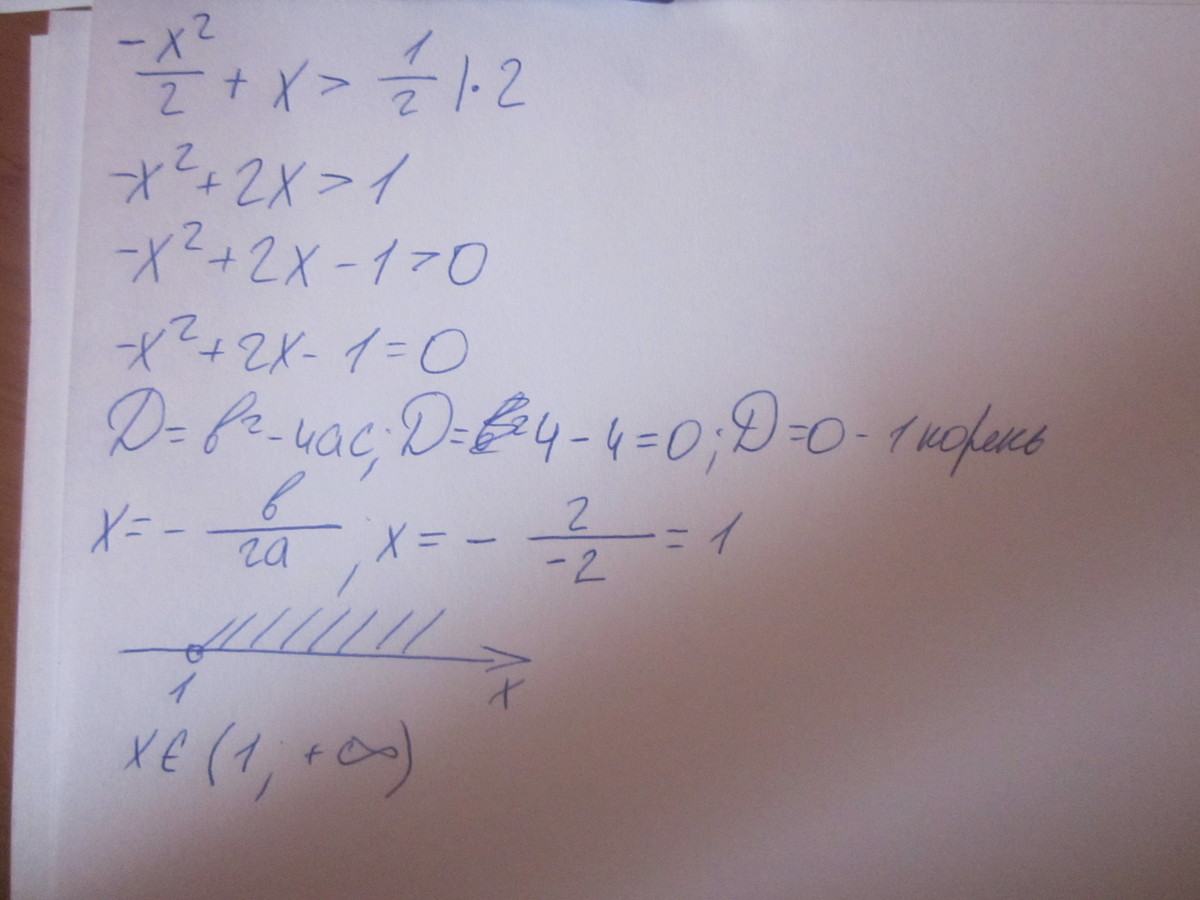 -x²/2 + x > 1/2 |·2
-x² + 2x > 1
-x² + 2x - 1 > 0
-x² + 2x - 1 = 0
D = в² - 4ac; D = 4 - 4 = 0; D = 0 - 1 корень
x = - в/2a ; x = - 2/-2 = 1
1 x
x ∈ (1; +∞)